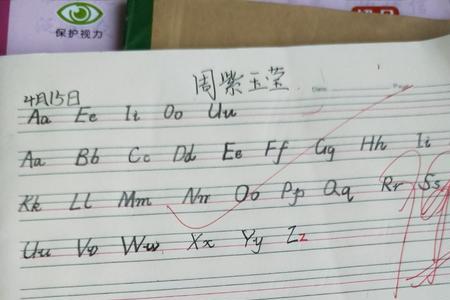 保护视力
周紫玉莹
4月15日
Date
Aa Ee Ii Oo Uu
Aa Bb Cc Dd Ee Ff Gg Hh Ii
Kk Ll Mm Nn Oo Pp Qq Rr Ss
Uu Vv Ww Xx Yy Zz